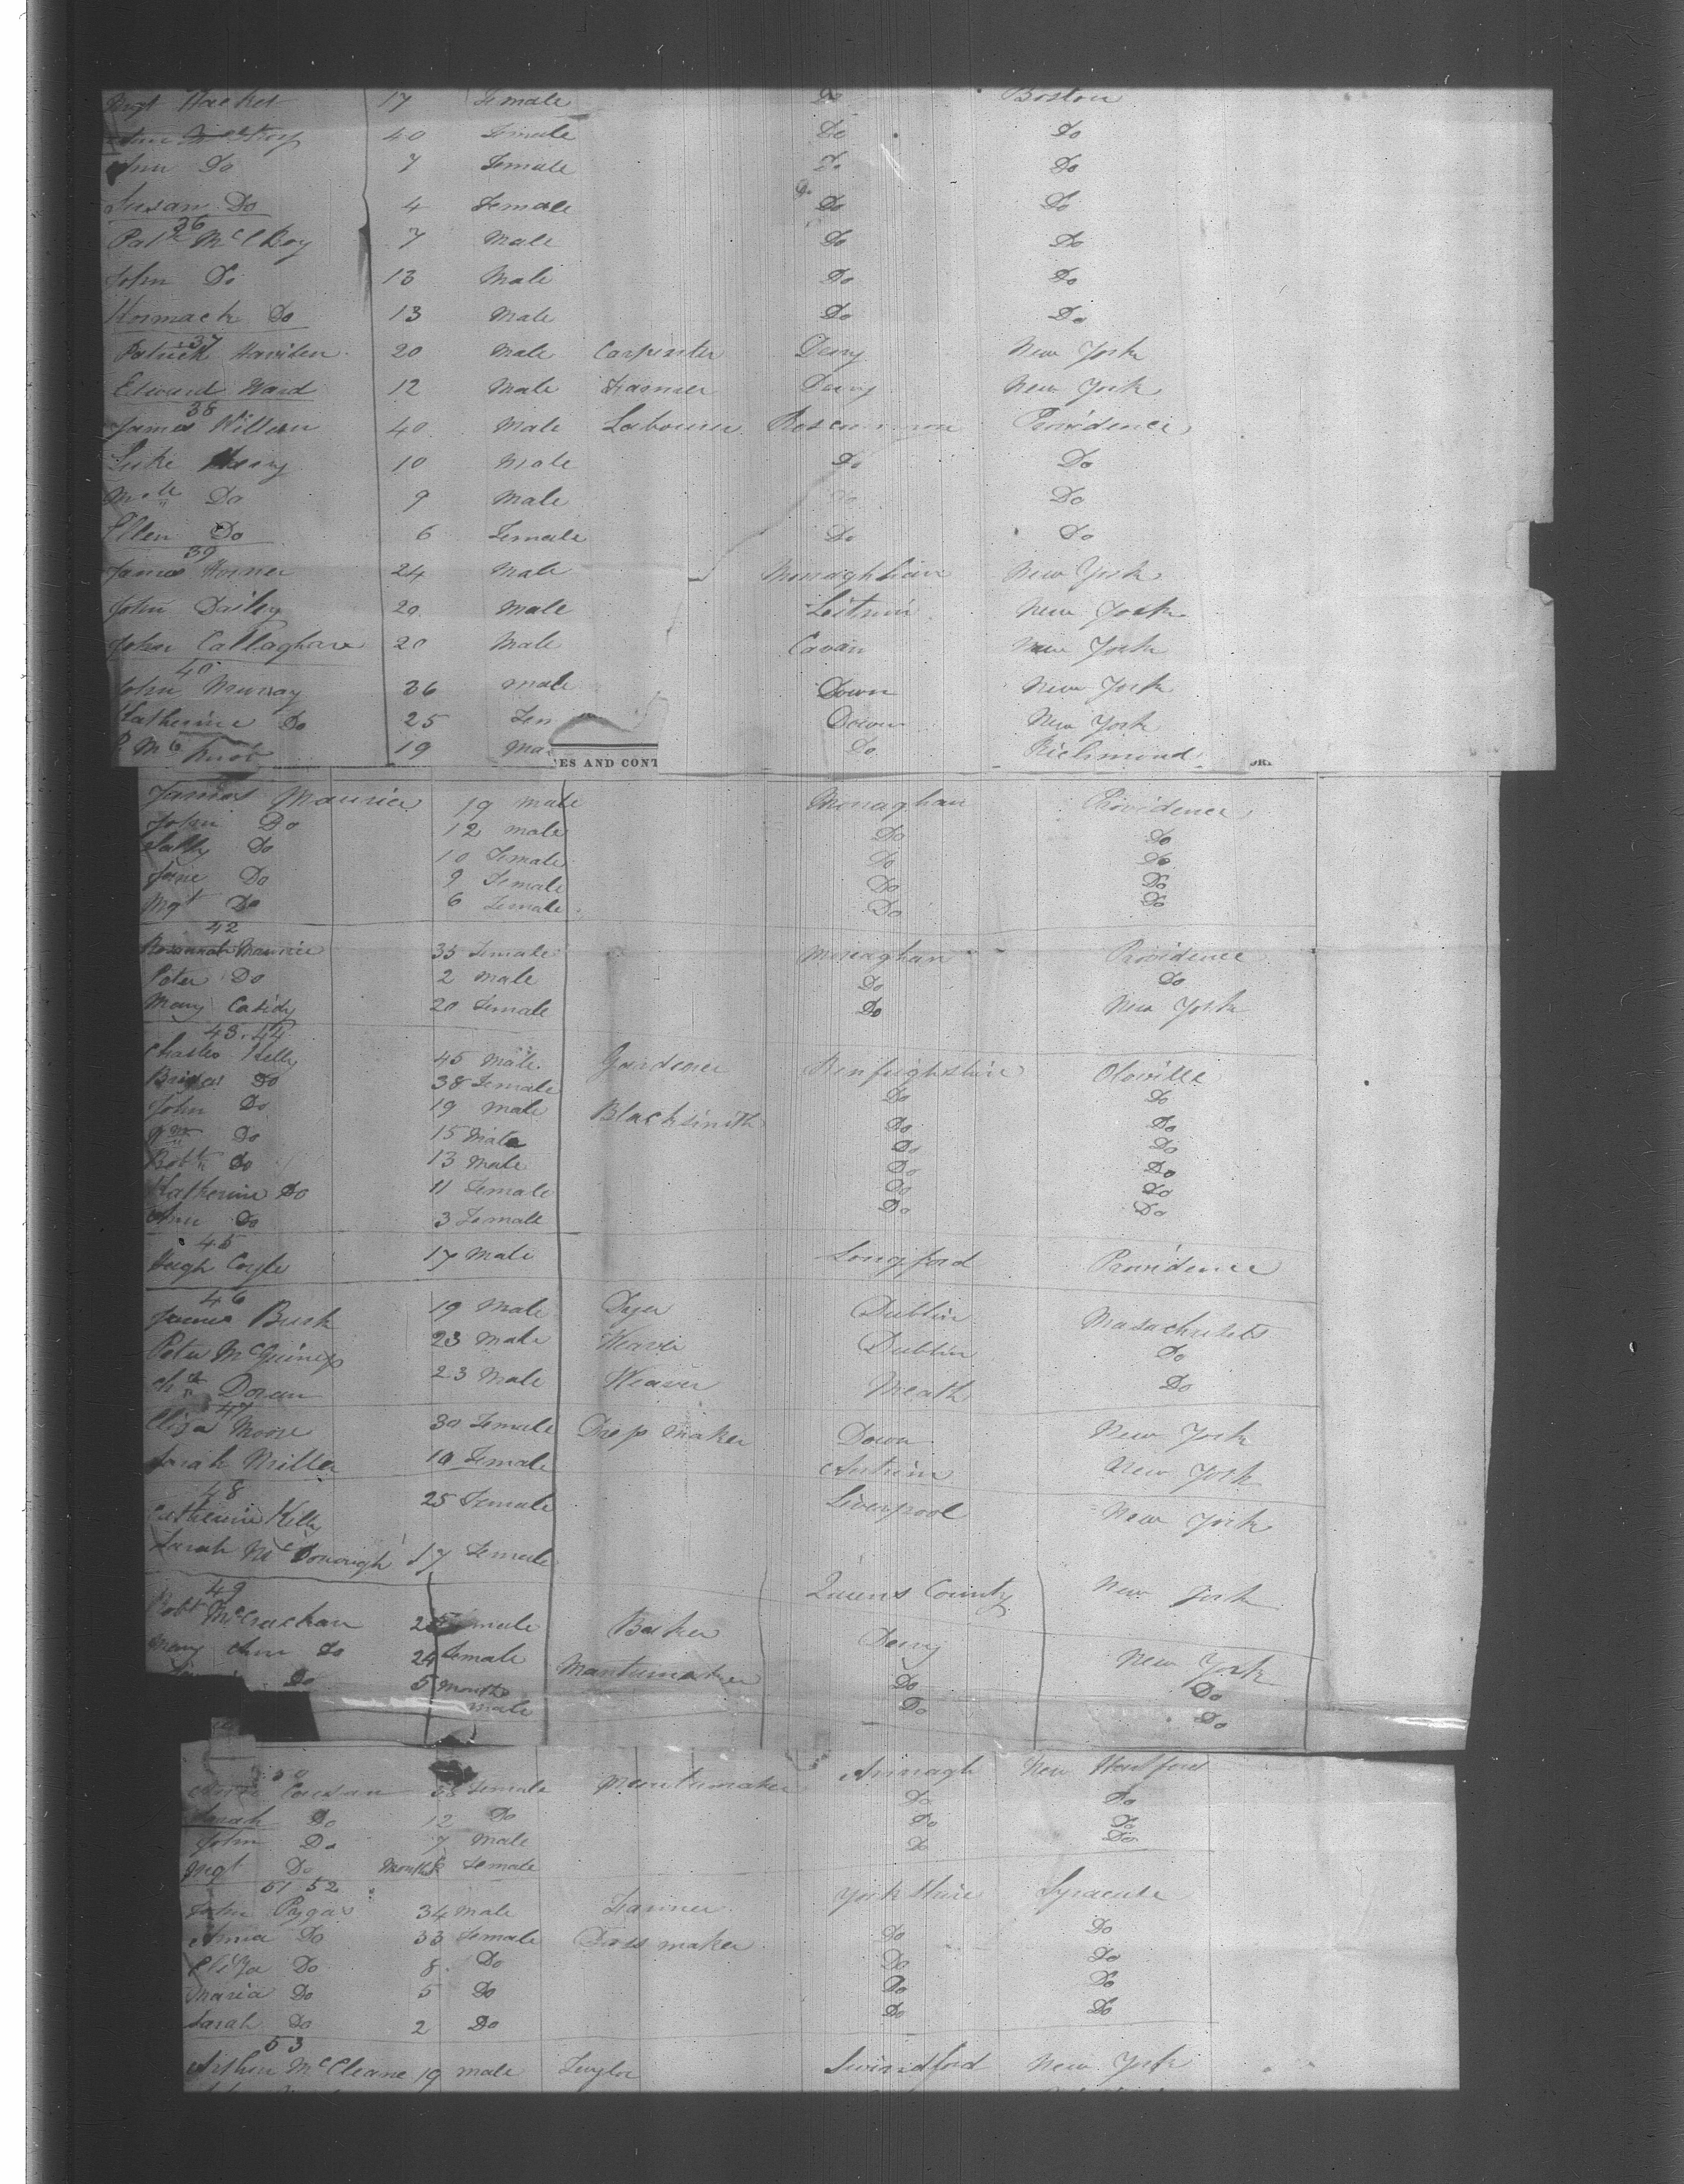 Mgt Hacket 17 Female Do Boston
Ann 40 Female Do Do
Ann Do 7 Female Do Do
Susan Do 4 Female Do Do
36
Patk McElroy 7 Male Do Do
John Do 13 Male Do Do
Kormack Do 13 Male Do Do
37
Patrick 20 Male Carpenter Derry New York
Edward Ward 12 Male Farmer Derry New York
38
James Killian 40 Male Labourer Roscommon Providence
Luke 10 Male Do Do
Do 9 Male Do Do
Ellen Do 6 Female Do Do
39
James Horner 24 Male Monaghhan New York
John Dailey 20 Male Leitrim New York
John Callaghan 20 Male Cavan New York
40
John Murray 36 Male Down New York
Katherine Do 25 Fem Down New York
P. Mc 19 Ma Do Richmond
ES AND CONT
James Maurice 19 male Monaghan Providence
John Do 12 male Do Do
Sally Do 10 Female Do Do
Jane Do 9 Female Do Do
Mgt Do 6 Female Do Do
42
Rosannah Maurice 35 Female Monaghan Providence
Peter Do 2 male Do Do
Mary Casidy 20 Female Do New York
43.44
Charles Kelly 45 male Gardener Renfrighshire
Bridget Do 38 Female Do Do
John Do 19 male Blacksmith Do Do
Wm Do 15 Male Do Do
Robt Do 13 Male Do Do
Katherine Do 11 Female Do Do
Ann Do 3 Female Do Do
45
Hugh Coyle 17 Male Longford Providence
46
James Bush 19 Male Dyer Dublin Masachusets
Peter McGuiness 23 Male Weaver Dublin Do
Doran 23 Male Weaver Meath Do
47
Eliza Moore 30 Female Dress Maker Down New York
Sarah Miller 10 Female Antrim New York
48
Catherine Kelly 25 Female Liverpool New York
Sarah McDonough 17 Female Queens County New York
49
Robt McCrackan male Baker Derry New York
Mary Ann Do 24 Female Mantumaker Do Do
Do 5 Months male Do Do
50
Female Mantumaker Armagh New Hartford
Sarah Do 12 Do Do Do
John Do 7 Male Do Do
Mgt Do Months Female Do Do
51 52
John 34 Male Farmer York Shire Syracuse
Anna Do 33 Female Dress maker Do Do
Eliza Do 8 Do Do Do
Maria Do 5 Do Do Do
Sarah Do 2 Do Do Do
53
Arthur McCleane 19 male New York